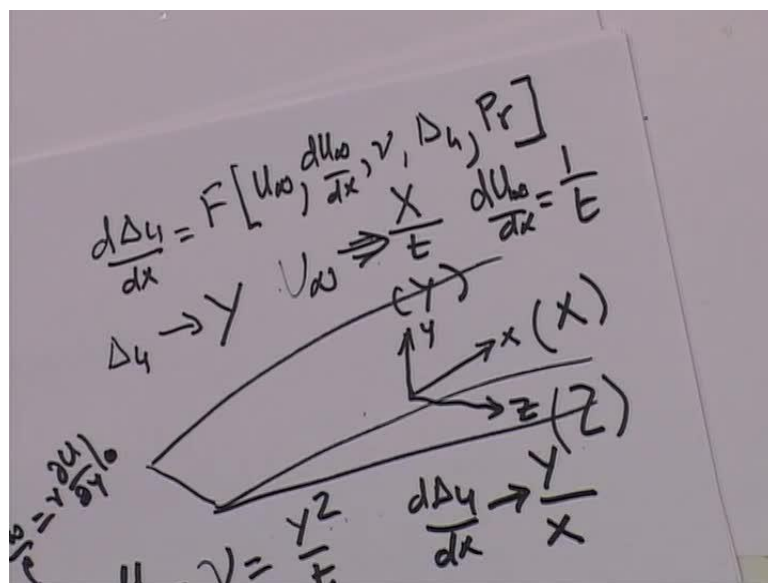 dΔ4/dx = F[U∞, dU∞/dx, ν, Δ4, Pr]
Δ4 → Y U∞ ⇒ X/t dU∞/dx = 1/t
(Y)
y
x (X)
z (Z)
= ν ∂u/∂y|₀
ν = Y²/t dΔ4/dx → Y/X